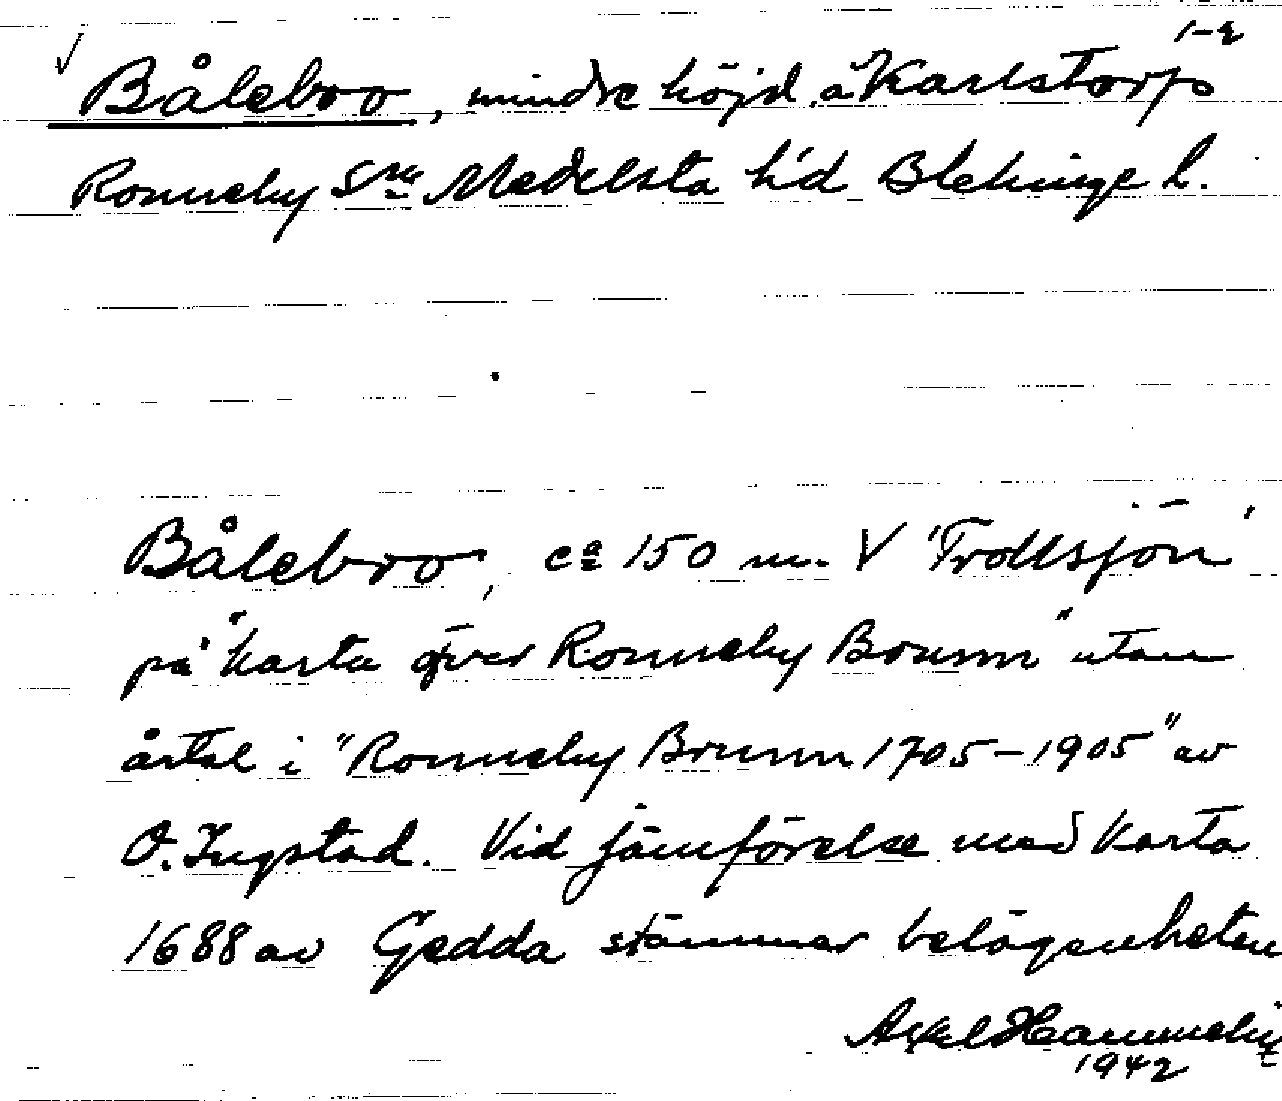 √ Bålebro, mindre höjd å Karlstorp 1-2
Ronneby Sn Medelsta h'd Blekinge l.
Bålebro, ca 150 m. V 'Trollsjön'
på "karta över Ronneby Brunn" utan
årtal i "Ronneby Brunn 1705-1905" av
O. Ingstad. Vid jämförelse med karta
1688 av Gedda stämmer belägenheten
Axel
1942